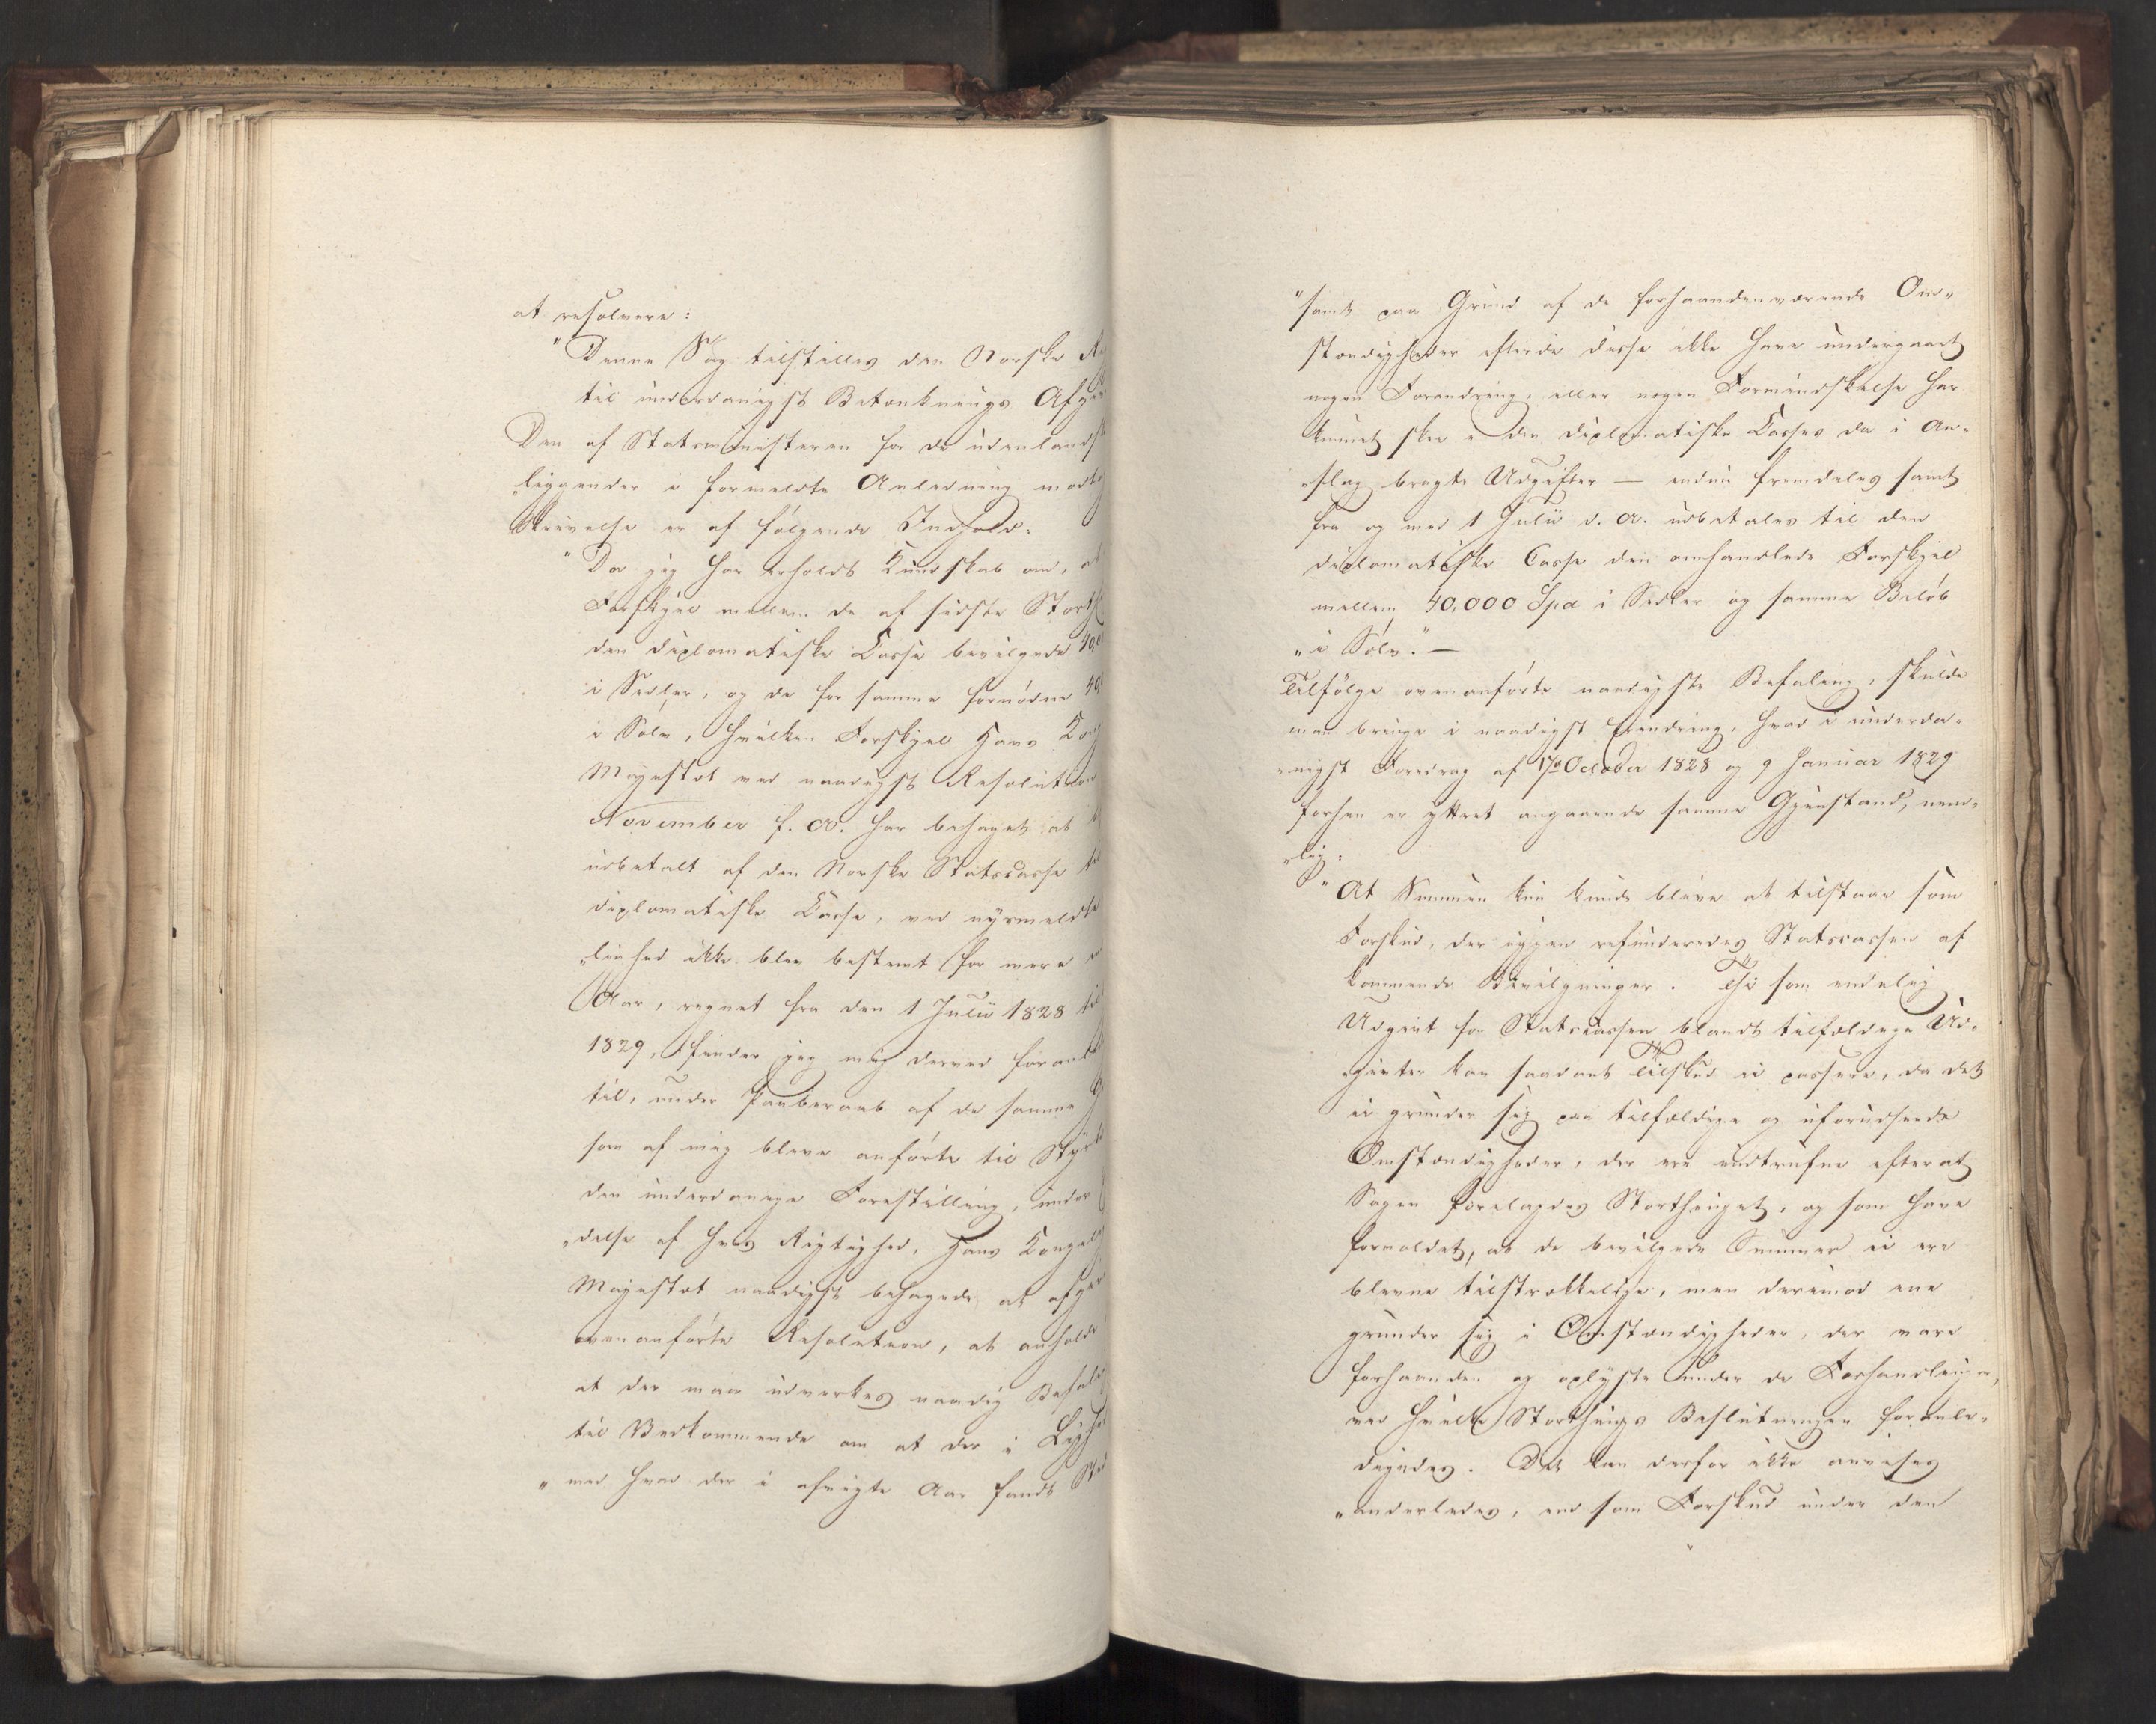 at resolvere:
"Denne Sag tilstilles den Norske Re
til underdanigst Betænknings Afgi
Den af Statsministeren for de udenlandsk
"liggender i formeldte Anledning modta
skrivelse er af følgende Indhold:
"Da jeg har erholdt Kundskab om, at
Forskjel mellem de af sidste Storth
den diplomatiske Casse bevilgede 40,00
i Sedler, og de for samme fornødne 40,
i Sølv, hvilken Forskjel Hans Kong
Majestæt ved naadigst Resolution
November f. A. har behaget at
udbetalt af den Norske Statscasse til
diplomatiske Casse, ved nysmeldte
"lighed ikke blev bestemt for mere en
Aar, regnet fra den 1 Julii 1828 til
1829, finder jeg mig derved foranled
til, under Paaberaab af de samme G
som af mig bleve anførte til Styrk
den underdanige Forestilling, under
"delse af hvis Rigtighed, Hans Kongelig
Majestæt naadigst behagede at afgive
ovenanførte Resolution, at anholde
at der maa udvirkes naadig Befali
til Vedkommende om at der i Lighe
"med hvad der i afvigte Aar fandt Sted
"samt paa Grund af de forhaandenværende Om-
stændigheder efterdi disse ikke have undergaaet
nogen Forandring, eller nogen Formindskelse har
kunnet skee i den diplomatiske Casses da i An-
"slag bragte Udgifter — endnu fremdeles samt
fra og med 1 Julii d. A. udbetales til den
diplomatiske Casse den omhandlede Forskjel
mellem 40,000 Spd i Sedler og samme Beløb
"i Sølv." —
Tilfølge ovenanførte naadigste Befaling, skulde
man bringe i naadigst Erindring, hvad i underda-
"nigst Foredrag af October 1828 og 9 Januar 1829
forhen er yttret angaaende samme Gjenstand, nem-
"lig:
"At Summen kun kunde blive at tilstaae som
Forskud, der igjen refunderedes Statscassen af
kommende Bevilgninger. Thi som endelig
Udgivt for Statscassen blandt tilfældige Ud-
"givter kan saadant Tilskud ei passere, da det
ei grunder sig paa tilfældige og uforudseede
Omstændigheder, der ere indtrufne efterat
Sagen forelagdes Storthinget, og som have
forvoldet, at de bevilgede Summer ei ere
blevne tilstrækkelige, men derimod ene
grunder sig i Omstændigheder, der vare
forhaanden og oplyste under de Forhandlinger,
ved hvilke Storthings Beslutningen foranle-
digedes. Det kan derfor ikke anvises
"anderledes, end som Forskud under den